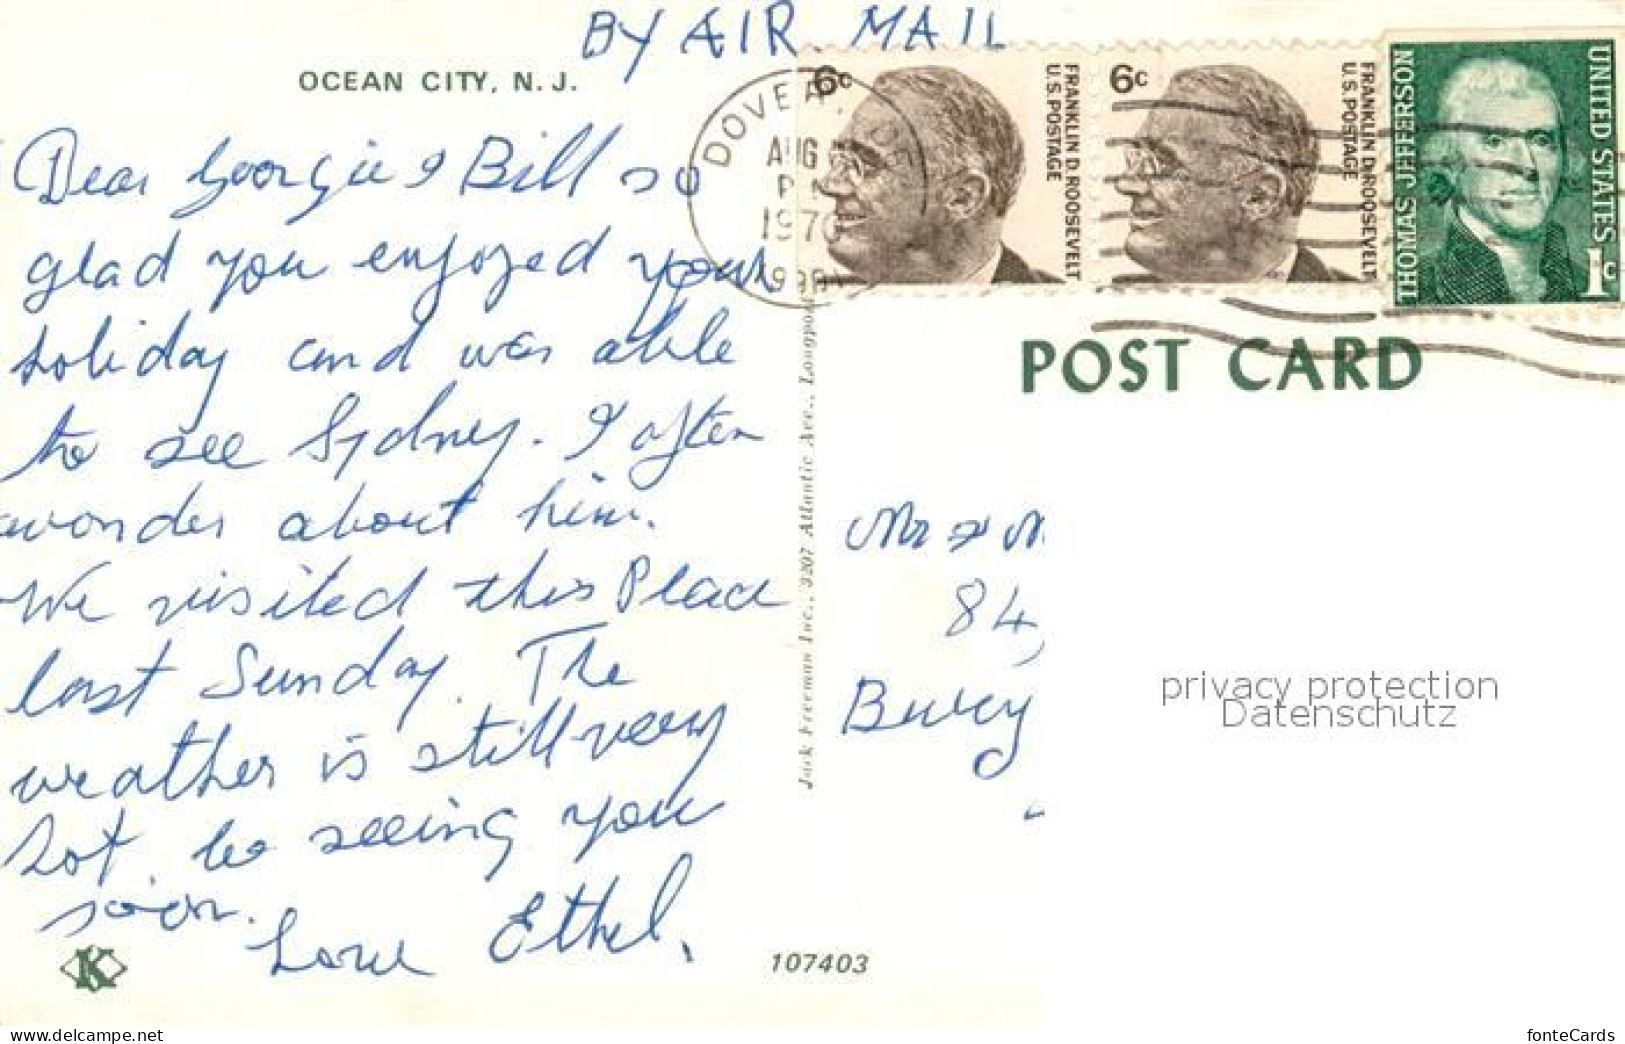 BY AIR. MAIL
OCEAN CITY, N.J.
Dear Georgie & Bill so
glad you enjoyed your
holiday and was able
to see Sydney. I often
wonder about him.
We visited this Place
last Sunday. The
weather is still very
hot. be seeing you
soon.
Love Ethel.
K
107403
Jack Freeman Inc., 3207 Atlantic Ave., Longpo
DOVER, DE
AUG
PM
1970
6c
FRANKLIN D. ROOSEVELT
U.S. POSTAGE
6c
FRANKLIN D. ROOSEVELT
U.S. POSTAGE
THOMAS JEFFERSON
UNITED STATES
1c
POST CARD
Mr & M
84,
privacy protection
Datenschutz
www.delcampe.net
fonteCards